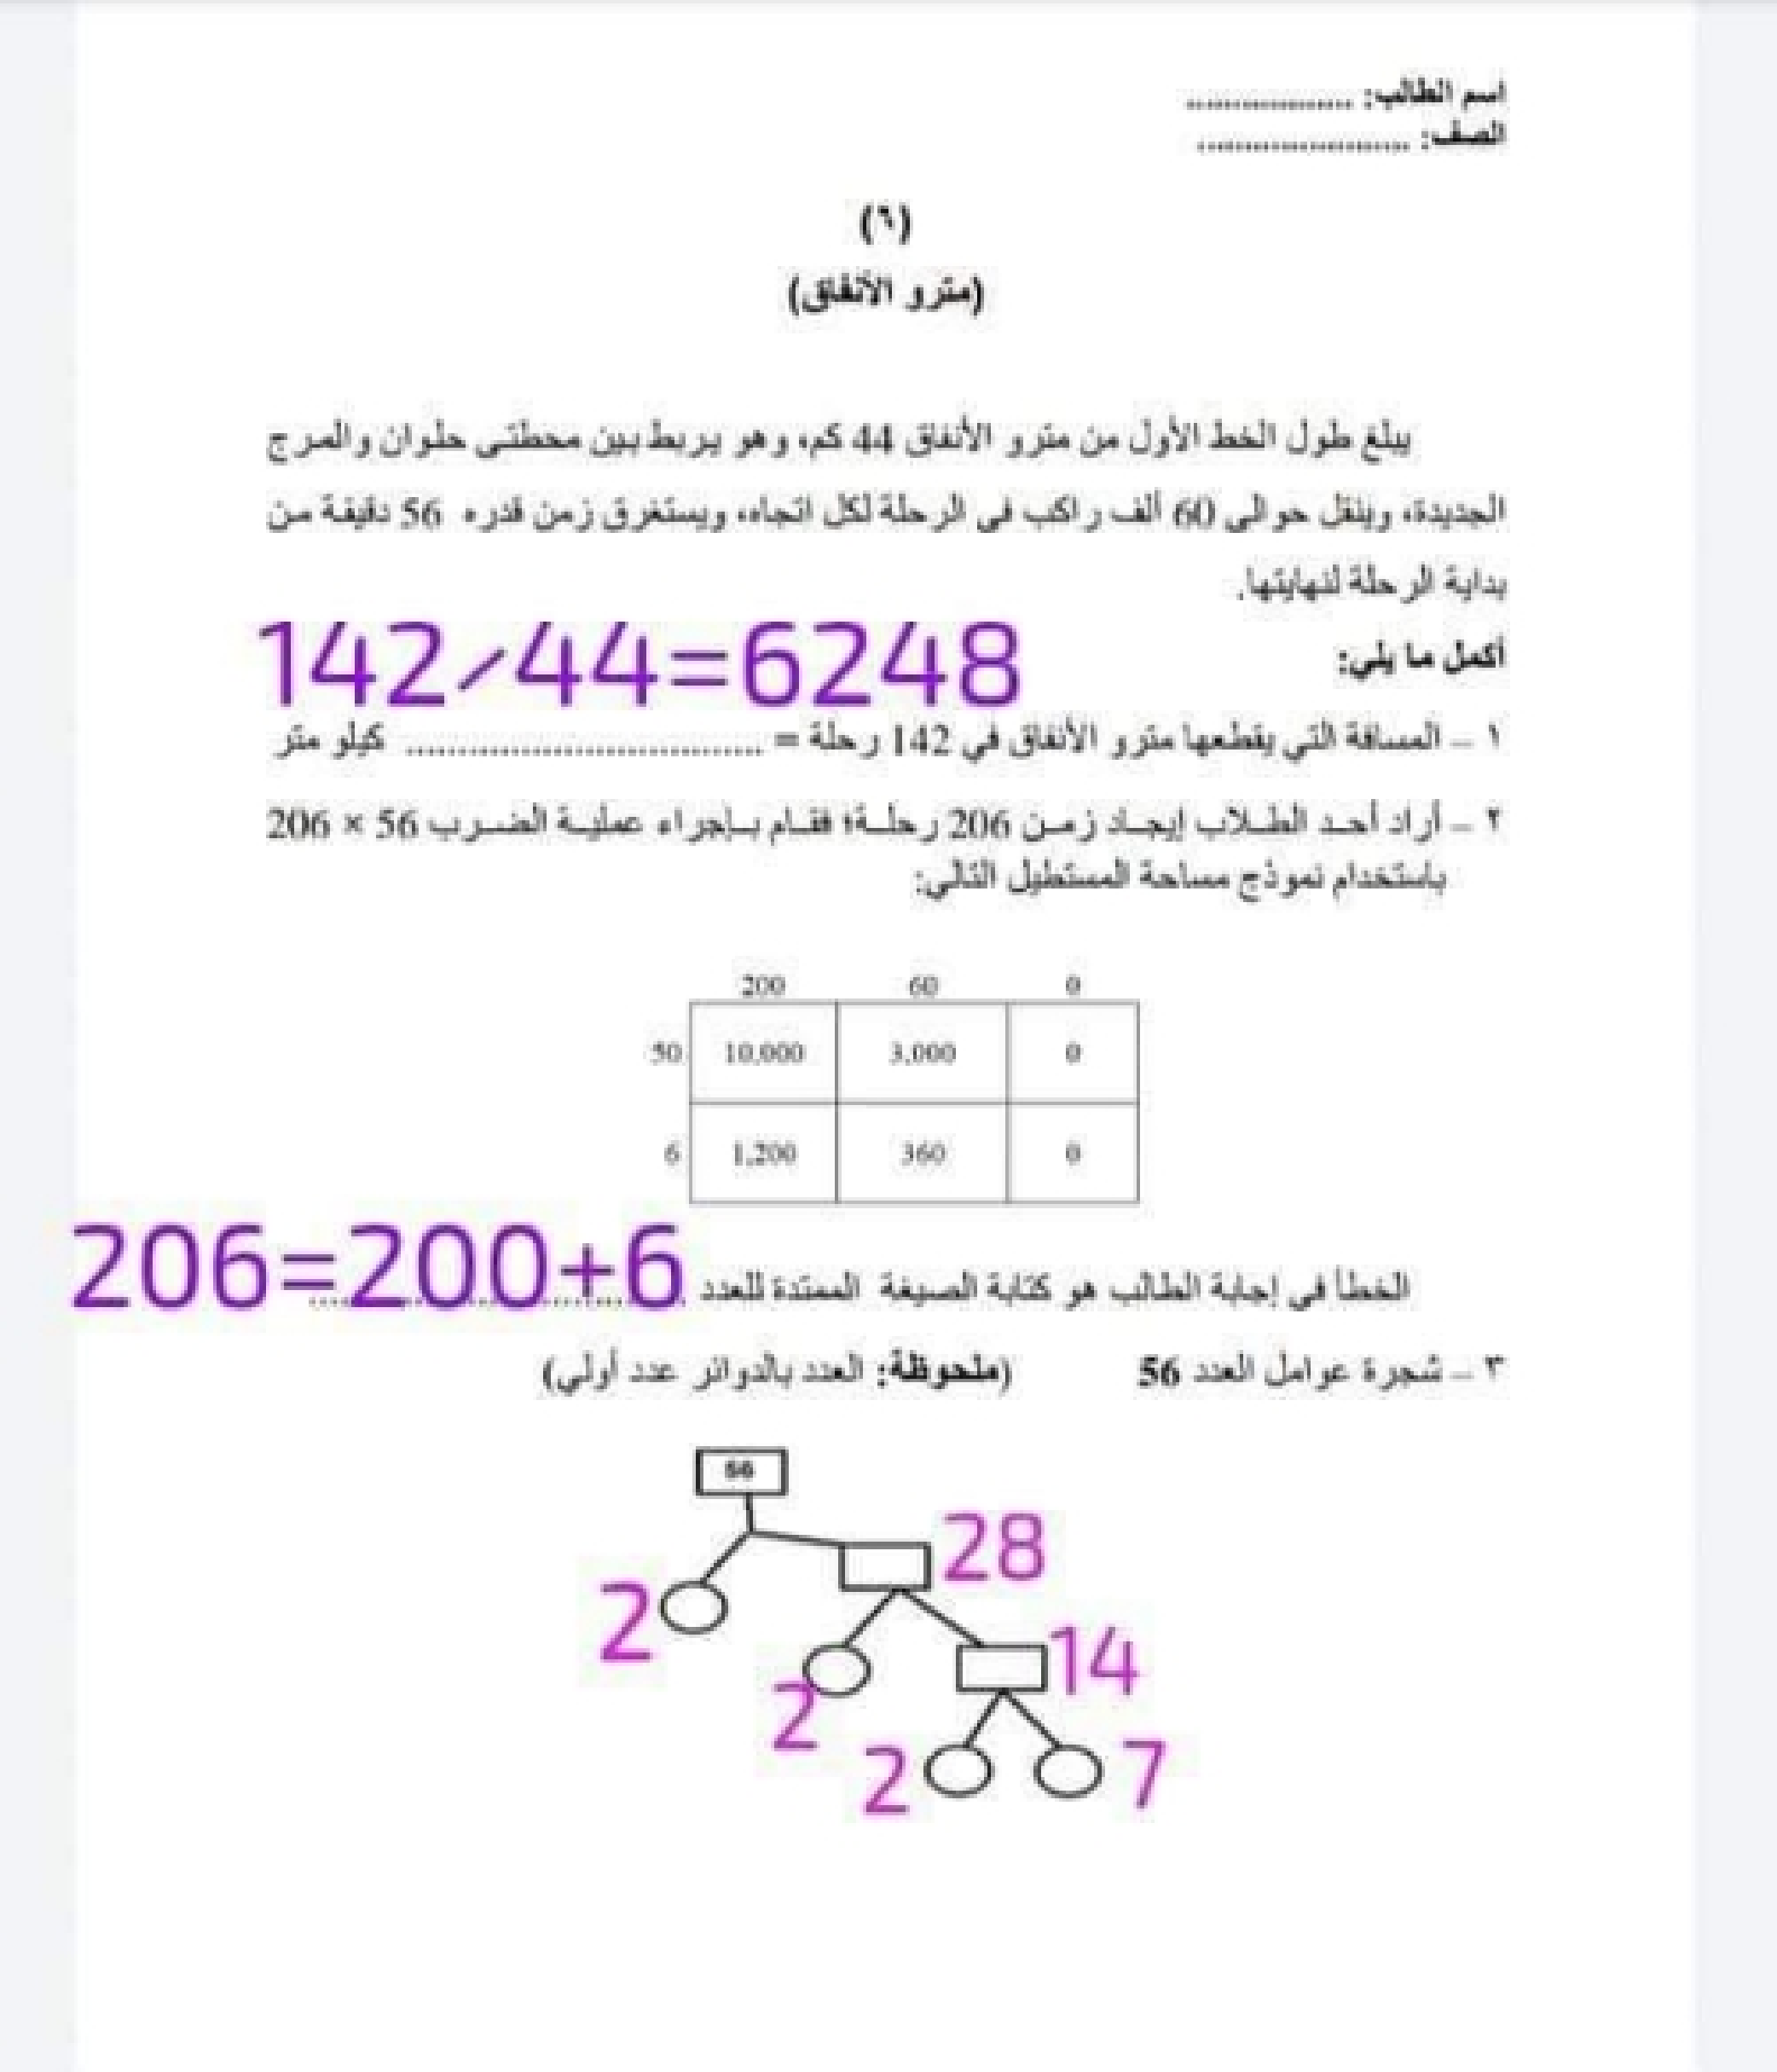 اسم الطالب: ..................
الصف: .......................
(٦)
(مترو الأنفاق)
يبلغ طول الخط الأول من مترو الأنفاق 44 كم، وهو يربط بين محطتي حلوان والمرج
الجديدة، وينقل حوالي 60 ألف راكب في الرحلة لكل اتجاه، ويستغرق زمن قدره 56 دقيقة من
بداية الرحلة لنهايتها.
142⁄44=6248
أكمل ما يلي:
١ – المسافة التي يقطعها مترو الأنفاق في 142 رحلة = .................................. كيلو متر
٢ – أراد أحد الطلاب إيجاد زمن 206 رحلة؛ فقام بإجراء عملية الضرب 56 × 206
باستخدام نموذج مساحة المستطيل التالي:
200 60 0
50 10,000 3,000 0
6 1,200 360 0
الخطأ في إجابة الطالب هو كتابة الصيغة الممتدة للعدد 206=200+6
٣ – شجرة عوامل العدد 56 (ملحوظة: العدد بالدوائر عدد أولي)
56
28
2
14
2
2 7